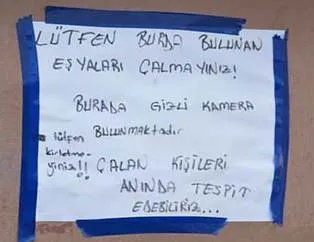 LÜTFEN BURDA BULUNAN
EŞYALARI ÇALMAYINIZ!
BURADA GİZLİ KAMERA
BULUNMAKtadır
• lütfen
kirletme-
yiniz!!
ÇALAN KİŞİLERİ
ANINDA TESPİT
EDEBİLİRİZ...